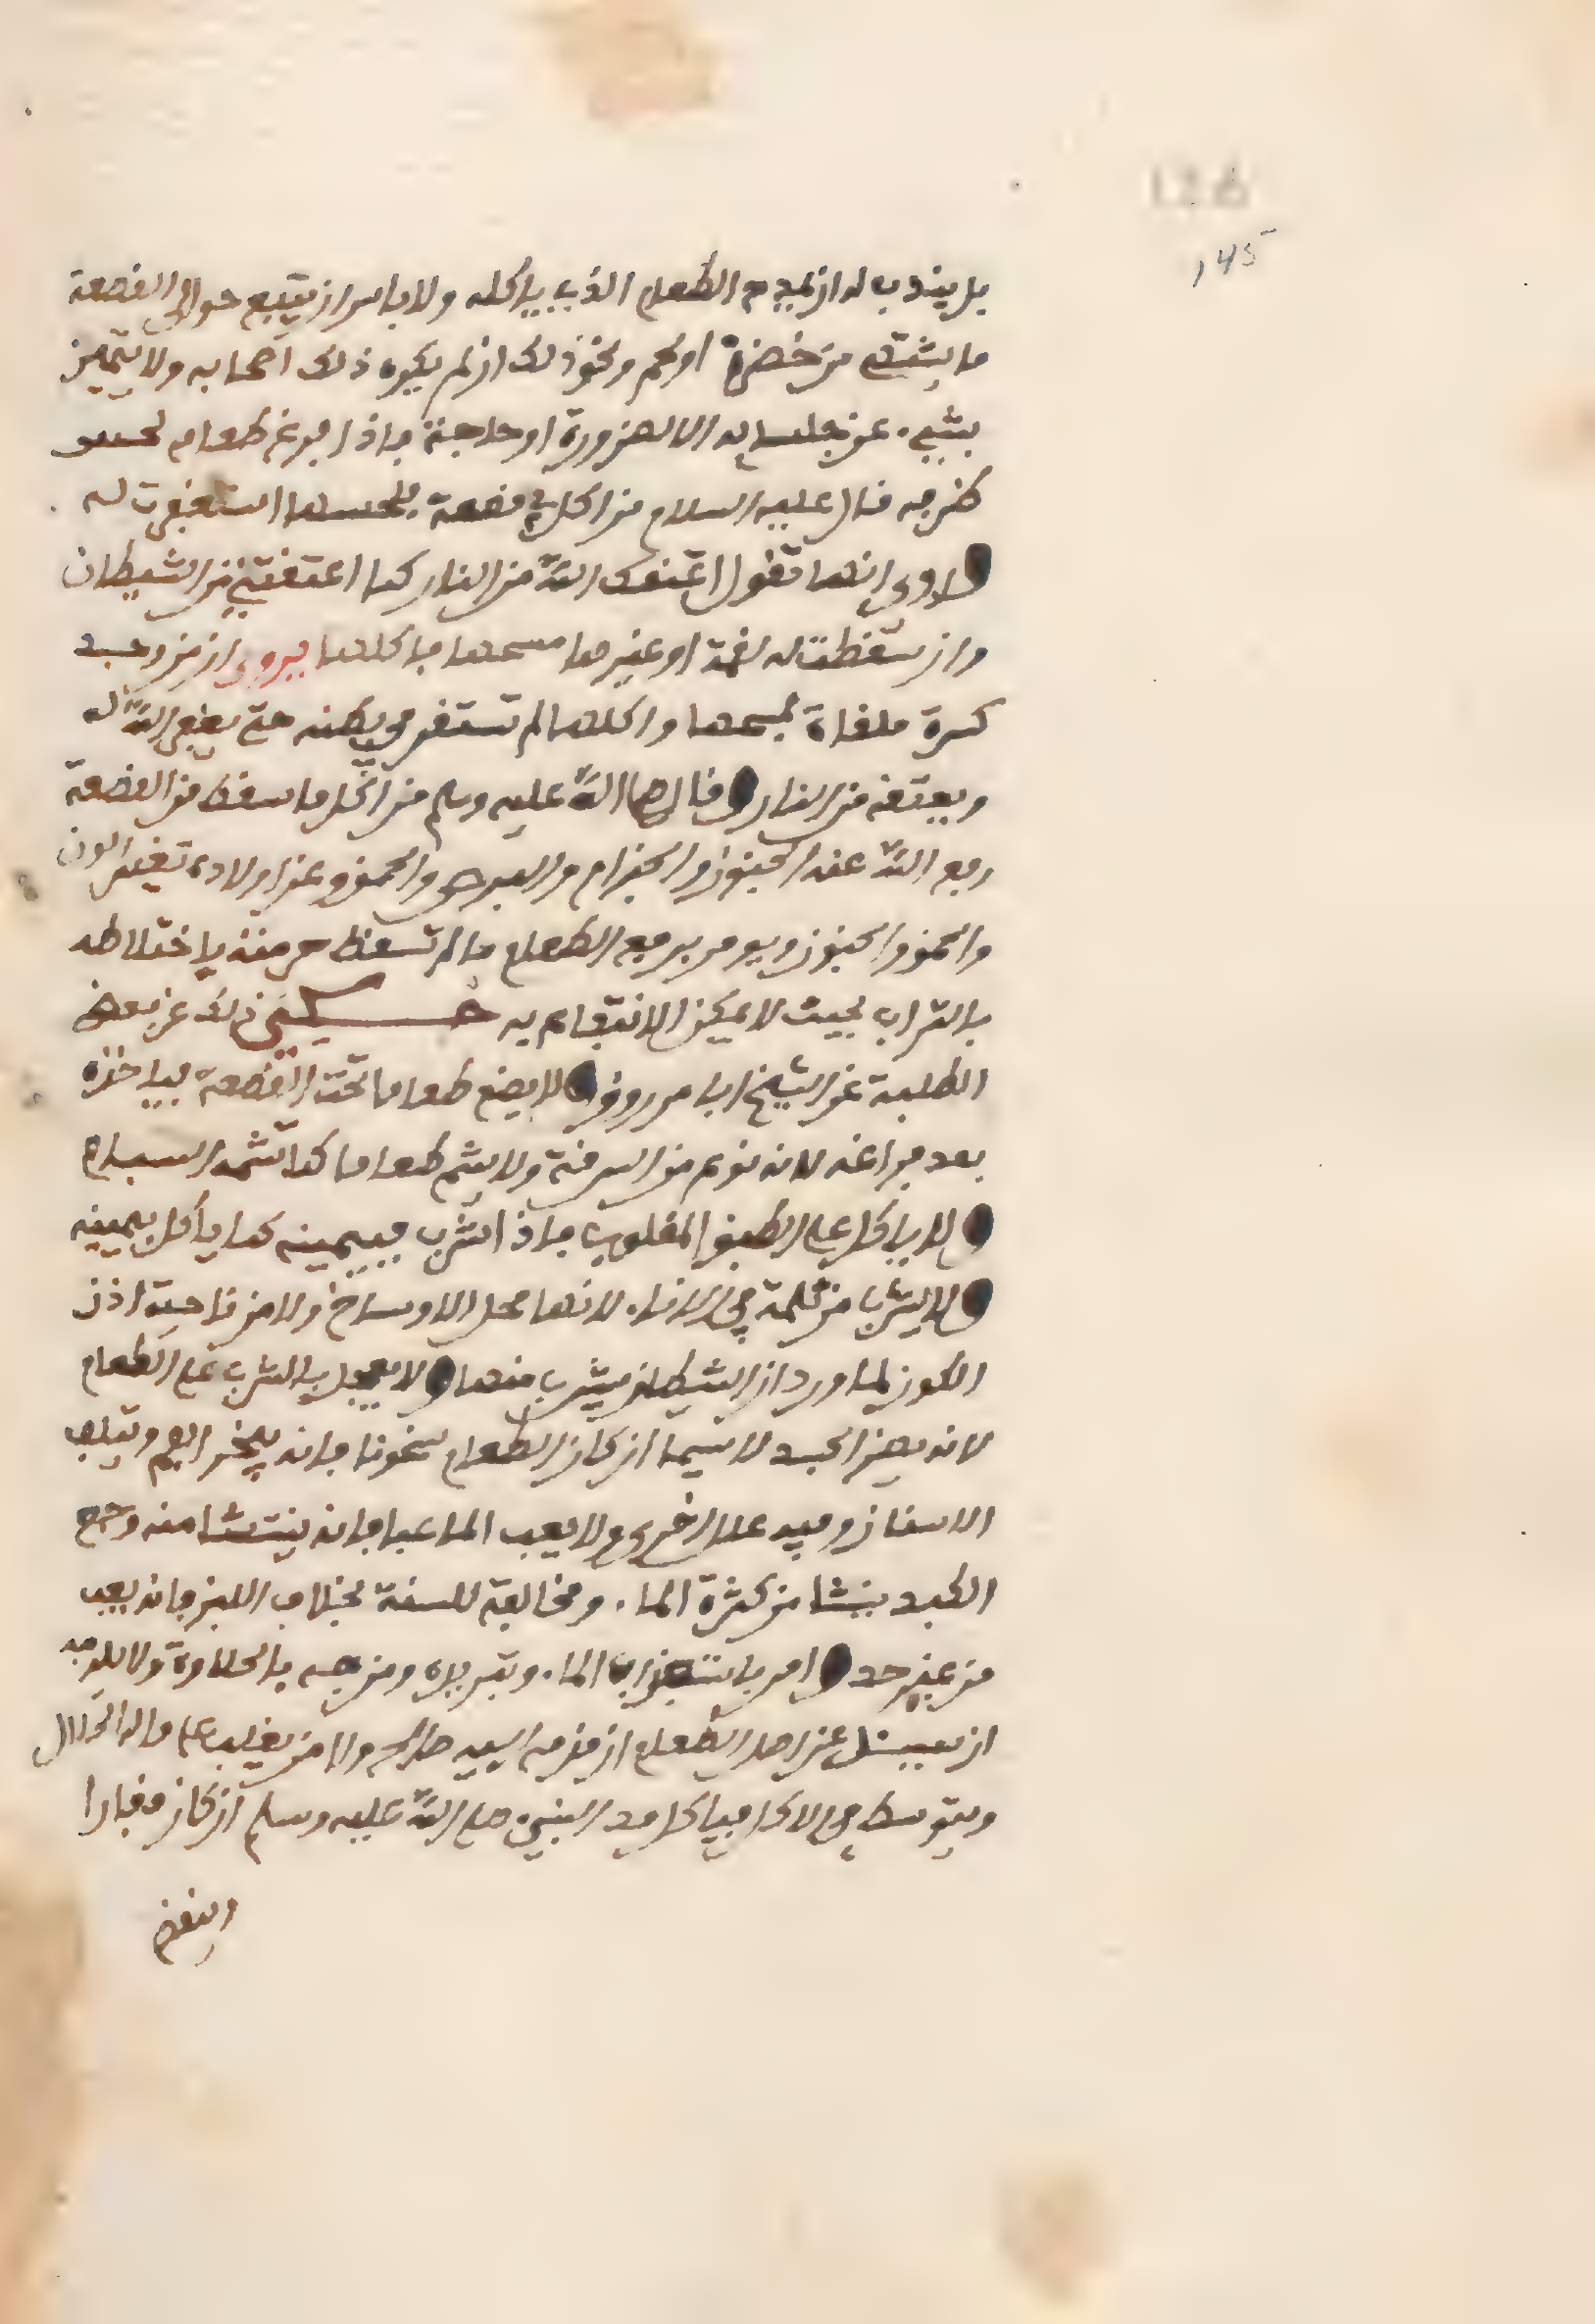 126
145
بل يندب له ان يمدح الطعام الذي ياكله ولا باس ان يتتبع حوالي القصعة
ما يشتهي من خضرة او لحم ونحو ذلك ان لم يكره ذلك اصحابه ولا يتميز
بشيء عن جلسايه الا لضرورة او حاجة فاذا فرغ طعام لحس
قال عليه السلام من اكل في قصعة فلحسها استغفرت له
وروي انها تقول اعتقك الله من النار كما اعتقتني من الشيطان
وان سقطت له لقمة او غيرها مسحها فاكلها فيروى ان من وجد
كسرة ملقاة فمسحها واكلها لم تستقر في بطنه حتى يغفر الله له
ويعتقه من النار وقال صلى الله عليه وسلم من اكل ما سقط من القصعة
رفع الله عنه الجنون والجذام والبرص والحمق وعن اولاده تغير اللون
والحمق والجنون ويومر برفع الطعام ما لم تسقط حرمته باختلاطه
بالتراب بحيث لا يمكن الانتفاع به حكي ذلك عن بعض
الطلبة عن الشيخ ابا مرزوق ولا يضع طعاما تحت القصعة لياخذه
بعد فراغه لانه نوع من السرقة ولا يشم طعاما كما تشمه السباع
ولا ياكل على الطبق المقلوب فاذا شرب فبيمينه كما ياكل بيمينه
ولا يشرب من ثلمة في الاناء لانها محل الاوساخ ولا من ناحية اذن
الكوز لما ورد ان الشيطان يشرب منها ولا يعجل بالشرب على الطعام
لانه يضر الجسد لا سيما ان كان الطعام سخونا فانه يبخر الفم ويتلف
الاسنان وفيه علل اخرى ولا يعب الماء عبا فانه ينشا منه وجع
الكبد ينشا من كثرة الماء ومخالفة للسنة بخلاف اللبن فانه يعب
من غير حد وامر باستعذاب الماء وتبريده ومزجه بالحلاوة ولا يلزمه
ان يسئل عن اصل الطعام ان قدمه اليه صالح او من يغلب على ماله الحلال
ويتوسط في الاكل فياكل مد النبي صلى الله عليه وسلم ان كان